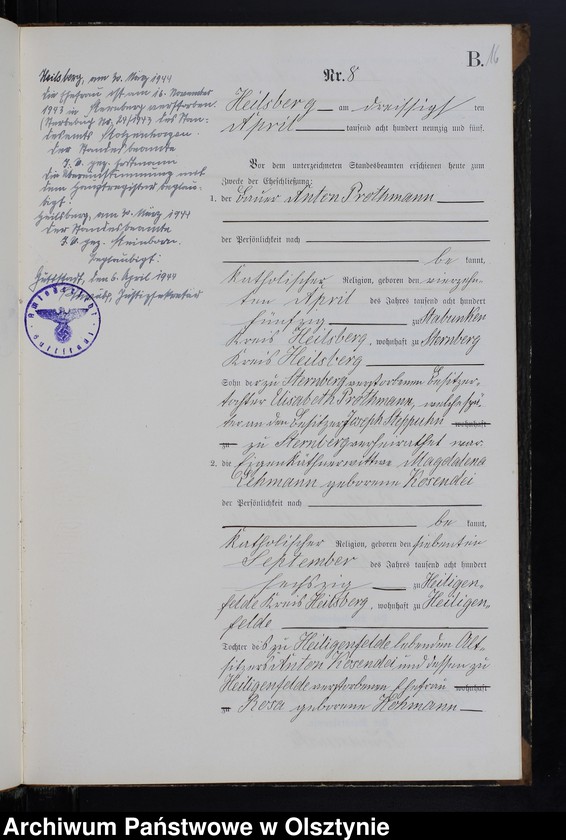 B. 16
Nr. 8
Heilsberg, am 30. März 1944
Die Ehefrau ist am 16. November
1943 in Sternberg verstorben.
(Sterbebuch No. 24/1943 des Stan-
desamts Stolzenhagen.
Der Standesbeamte
J. V. gez.
Die Übereinstimmung mit
dem Hauptregister beglau-
bigt.
Heilsberg, am 30. März 1944
Der Standesbeamte
J. V. gez. Steinborn.
Beglaubigt:
Guttstadt, den 6. April 1944
Justizsekretär
Amtsgericht
Guttstadt
Heilsberg am dreissigsten
April tausend acht hundert neunzig und fünf.
Vor dem unterzeichneten Standesbeamten erschienen heute zum
Zwecke der Eheschließung:
1. der Bauer Anton Prothmann
der Persönlichkeit nach
be kannt,
katholischer Religion, geboren den vierzehn-
ten April des Jahres tausend acht hundert
fünfzig zu Stabunken
Kreis Heilsberg, wohnhaft zu Sternberg
Kreis Heilsberg
Sohn der zu Sternberg verstorbenen Besitzer-
tochter Elisabeth Prothmann, welche spä-
ter an den Besitzer Joseph Steppuhn wohnhaft
zu zu Sternberg verheirathet war.
2. die Eigenkäthnerwittwe Magdalena
Lehmann geborene Kosendei
der Persönlichkeit nach
be kannt,
katholischer Religion, geboren den siebenten
September des Jahres tausend acht hundert
sechszig zu Heiligen-
felde Kreis Heilsberg, wohnhaft zu Heiligen-
felde
Tochter des zu Heiligenfelde lebenden Alt-
sitzers Anton Kosendei und dessen zu
Heiligenfelde verstorbenen Ehefrau wohnhaft
zu Rosa geborene Hohmann
Archiwum Państwowe w Olsztynie